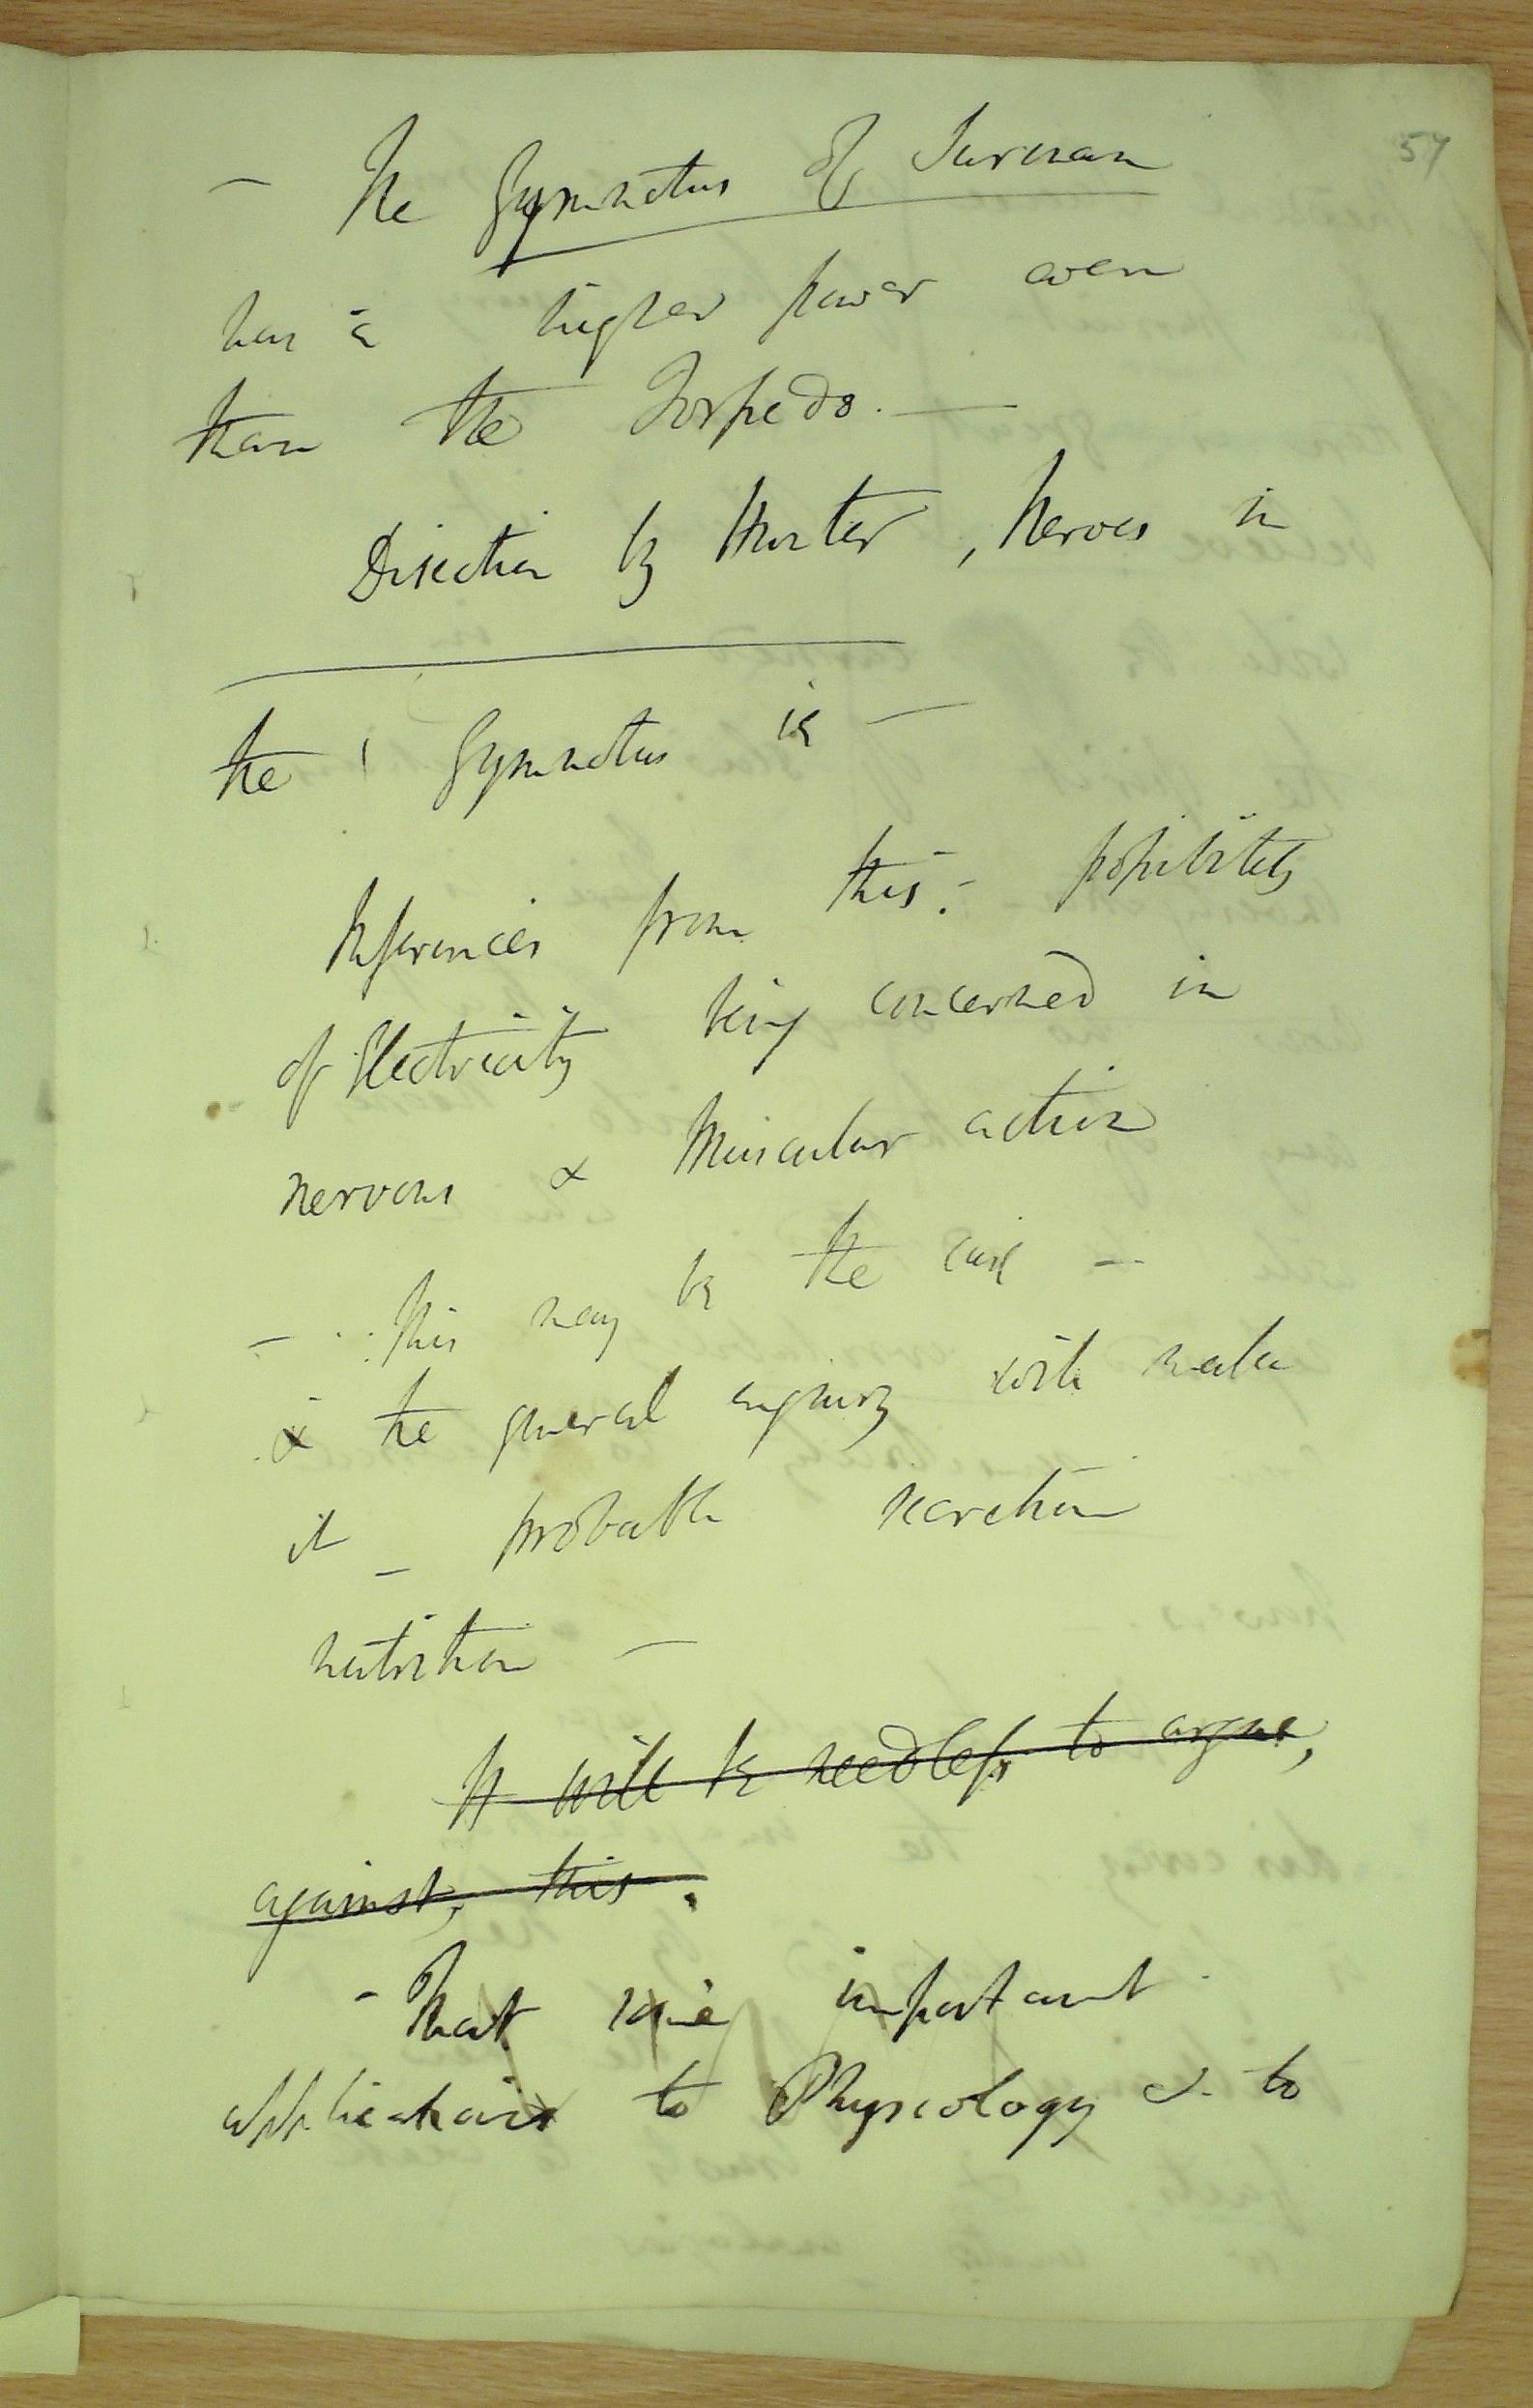 57
– The Gymnotus of Surinam
has a higher power even
than the Torpedo. —
Disection by Hunter, Nerves in
the Gymnotus is –
Inferences from this:– possibility
of Electricity being concerned in
nervous & Muscular action
– This may be the case –
& the general enquiry will make
it – probable secretion
nutrition –
It will be needless to argue,
against, this.
– That some important
applications to Physiology & to